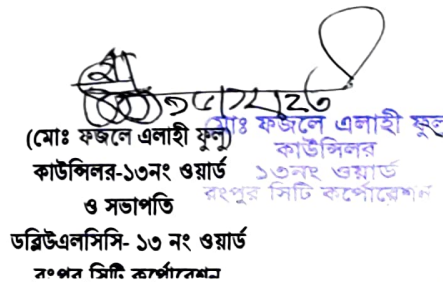 (মোঃ ফজলে এলাহী ফুলু)
কাউন্সিলর-১৩নং ওয়ার্ড
ও সভাপতি
ডব্লিউএলসিসি- ১৩ নং ওয়ার্ড
রংপুর সিটি কর্পোরেশন
মোঃ ফজলে এলাহী ফুলু
কাউন্সিলর
১৩নং ওয়ার্ড
রংপুর সিটি কর্পোরেশন